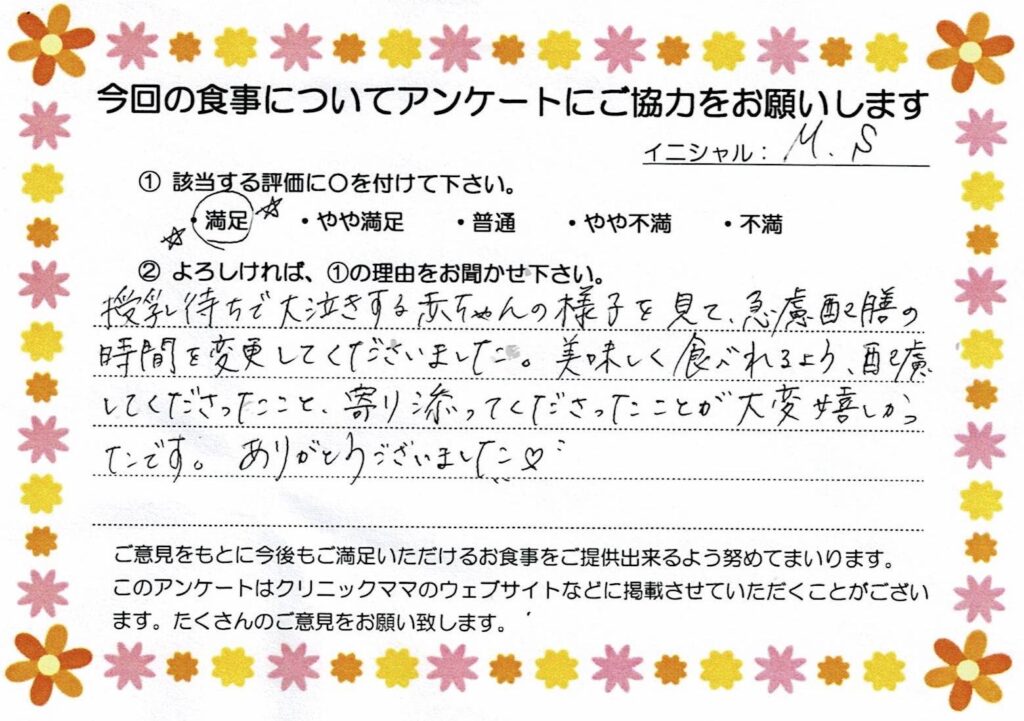 今回の食事についてアンケートにご協力をお願いします
イニシャル： M. S
① 該当する評価に〇を付けて下さい。
・満足 ・やや満足 ・普通 ・やや不満 ・不満
② よろしければ、①の理由をお聞かせ下さい。
授乳待ちで大泣きする赤ちゃんの様子を見て、急慮配膳の
時間を変更してくださいました。美味しく食べれるよう、配慮
してくださったこと、寄り添ってくださったことが大変嬉しかっ
たです。ありがとうございました♡
ご意見をもとに今後もご満足いただけるお食事をご提供出来るよう努めてまいります。
このアンケートはクリニックママのウェブサイトなどに掲載させていただくことがござい
ます。たくさんのご意見をお願い致します。